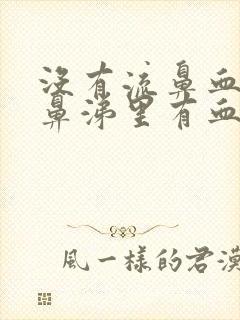 没有流鼻血
鼻涕里有血
風一樣的君漠